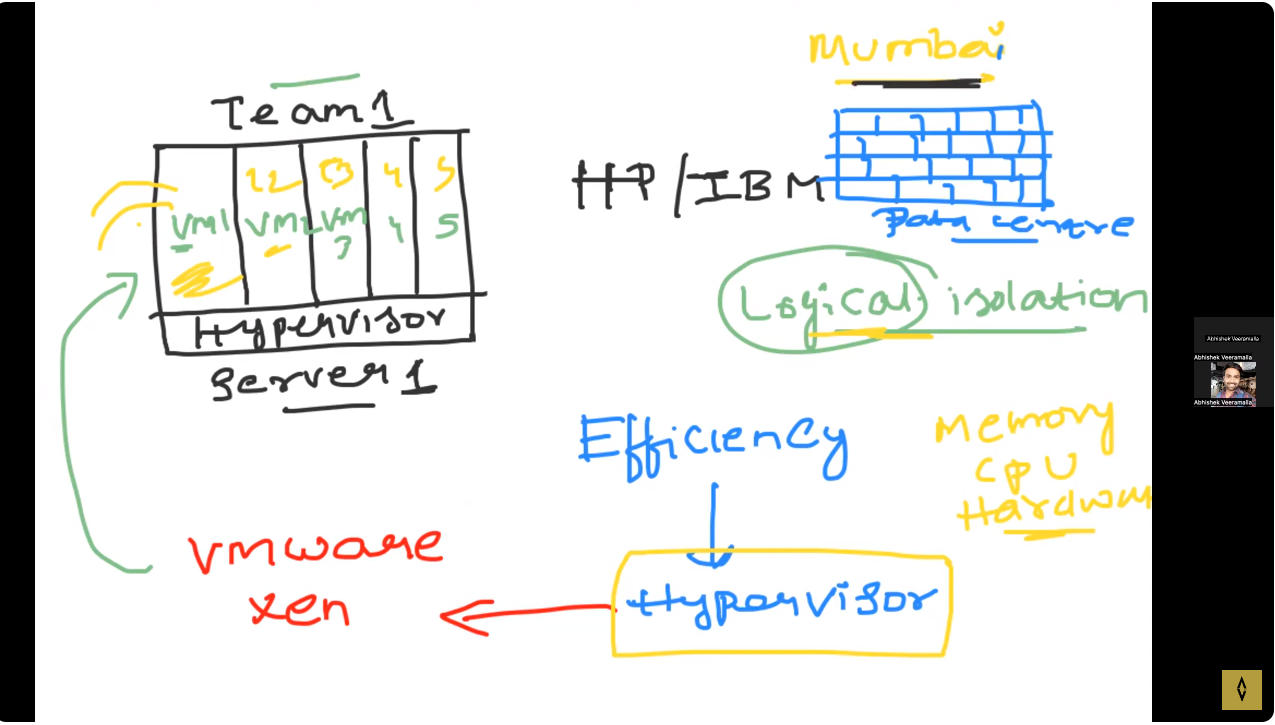 Team 1
22 3 4 5
VM1 VM2 VM 3 4 5
Hypervisor
Server 1
Mumbai
HP/IBM
Data centre
Logical isolation
Efficiency
Memory
CPU
Hardware
Hypervisor
vmware
xen
Abhishek Veeramalla
Abhishek Veeramalla
Abhishek Veeramalla